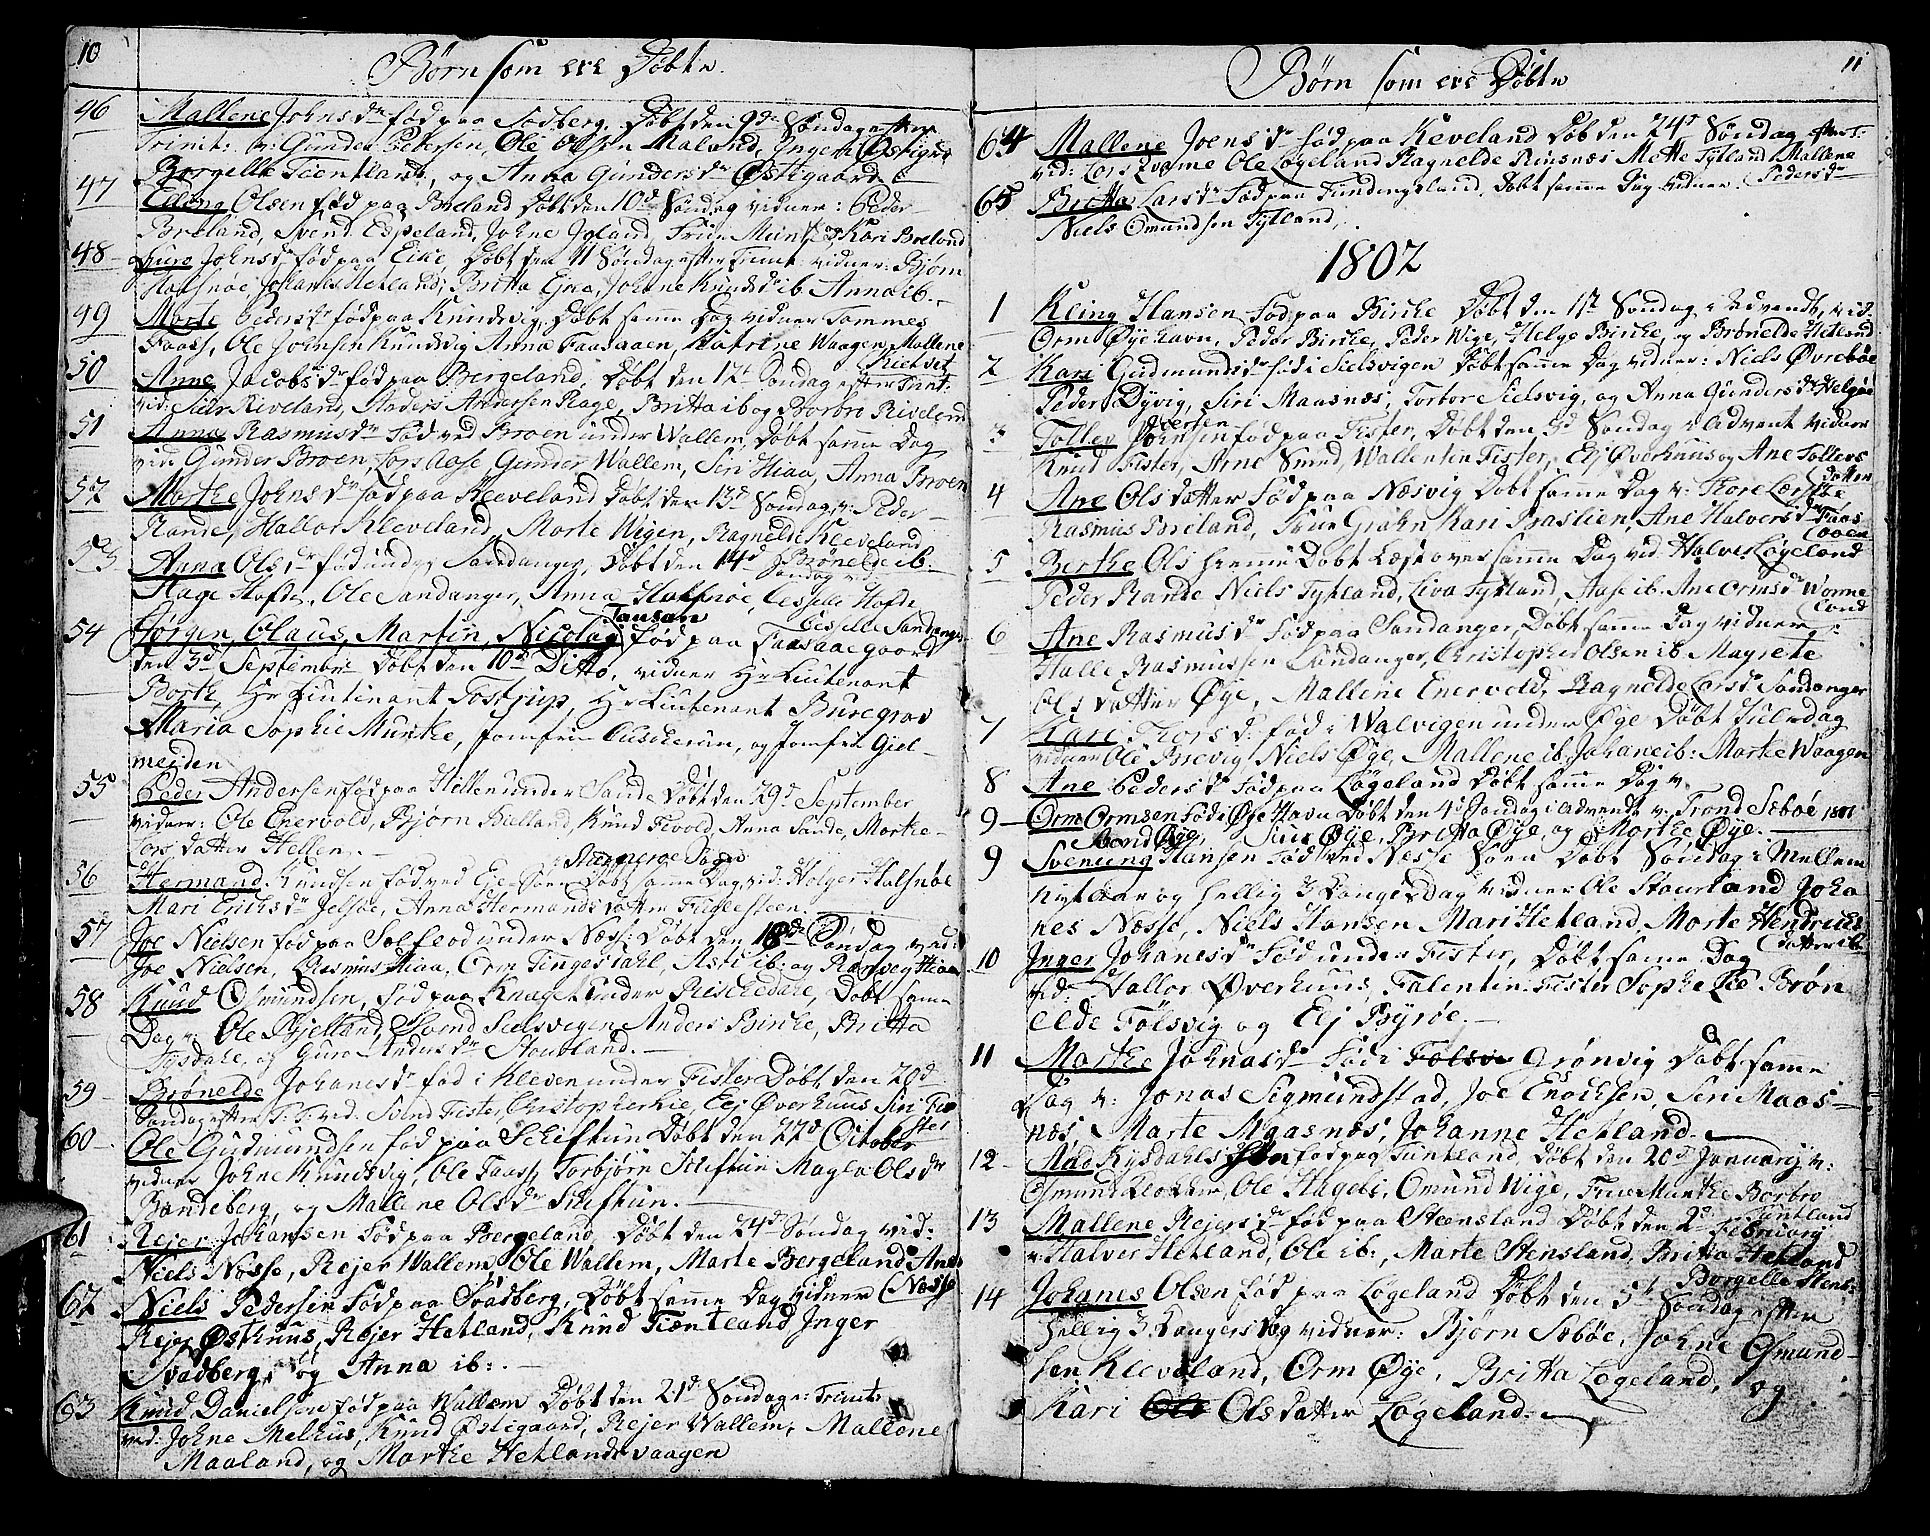 10
Børn som ere Døbte.
46 Mallene Johnsdr født paa Sadberg, Døbt den 9de Søndag efter
Trinit: v: Gunder Pedersen, Ole Olsen Maland, Ingeri Østigrd
Borgelle Tientland, og Anna Gundersdr Østigaard
47 Olsen født paa Breland Døbt den 10de Søndag vidner: Peder
Breland, Svend Espeland, Johne Jøland, Frue Munthe og Kari Breland
48 Guro Johnsdr født paa Eike Døbt den 11 Søndag efter Trinit: vidner: Bjørn
Halsnøe, Johanes Hetland, Britta Ejaa, Johane Knudsdr ib. Anna ib.
49 Marte Pedersdr født paa Kundsvig, Døbt samme Dag vidner Tommes
Faass, Ole Johnsen Kundsvig Anna Faasaaen, Katrine Waagen, Mallene
50 Anne Jacobsdr født paa Bergeland, Døbt den 12t Søndag efter Trint:
vid: Siur Riveland, Anders Andersen Rage, Britta ib og Borbro Riveland
51 Anna Rasmusdr Født ved Broen under Wallem, Døbt samme Dag
vid Gunder Broen, Lars Aase, Gunder Wallem, Siri Hiaa, Anna Broen
52 Marthe Johnsdr født paa Kleveland Døbt den 13d Søndag v: Peder
Rande, Hallor Kleveland, Marte Wigen, Ragnelde Kleveland
Brønelde ib.
53 Anna Olsdr født under Sandanger, Døbt den 14d Søndag vid:
Hage Hofde, Ole Sandanger, Anna Halsnøe, Cesselle Hofde
Cesselle Sandanger
54 Jørgen, Claus, Martin, Nicolay Tausan født paa Faasaaegaard
den 3d September Døbt den 10d Ditto, vidner Hr Liutenant
Borth, Hr Liutenant Tostrup, Hr Liutenant Buregrav
Maria Sophie Munthe, Jomfrue og Jomfrue Gjel-
mejden
55 Peder Andersen født paa Hellen under Sande Døbt den 29d September
vidner: Ole Enervold, Bjørn Hialland, Knud Tevold, Anna Sande, Marthe
Lorsdatter Hellen.
56 Hermand Knudsen født ved Eje Søen Døbt samme Dag vid: Holger Halsnøe
Mari Eriksdr Jelsøe, Anna Hermandsdatter Fuglesteen.
57 Joe Nielsen født paa Solflod under Næss: Døbt den 18de Søndag vid:
Joe Nielsen, Rasmus Hiaa, Orm Tingesdahl, Asti ib: og Ranveg Hiaa
58 Knud Osmundsen, født paa Knaget under Riskedahl, Døbt same
Dag v: Ole Bjelland, Svend Sielsvigen Anders Birke, Britta
Tysdahl, og Guro Andersdr Stoubland.
59 Brønelde Johanesdr født i Kleven under Fister Døbt den 20d
Søndag efter T: vid: Svend Fister, Christopher Lie, Elj Øverhuus Siri Fis
ter
60 Ole Gudmundsen født paa Schiftun Døbt den 22d October
vidner Johne Kundsvig, Ole Faass, Torbjørn Schiftun Magla Olsdr
Bandeberg, og Mallene Olsdr Skiftun.
61 Rejer Johansen Født paa Bergeland, Døbt den 24d Søndag vid:
Niels Nøsse, Rejer Wallem, Ole Wallem, Marte Bergeland, Ane
Nøsse
62 Niels Pedersen Født paa Svadberg, Døbt samme Dag vidner
Rejer Østhuus, Rejer Hetland, Knud Tientland Inger
Svadberg, og Anna ib:.
63 Knud Danielsen født paa Wallem Døbt den 21d Søndag e: Trinit:
vid: Johne Melhus, Knud Østigaard, Rejer Wallem, Mallene
Maaland, og Marthe Hetlandsvaagen
11
Børn som ere Døbte
64 Mallene Joensdr Født paa Kleveland Døb den 24d Søndag efter T:
vid: Lors Ole Løgeland Ragnelde Rinsnæs Mette Tytland Mallene
Pedersdr
65 Britta Larsdr Født paa Tundingsland, Døbt samme Dag vidner
Niels Omundsen Tytland,
1802
1 Kling Hansen Født paa Birke Døbt den 1st Søndag i Advendt, vid:
Orm Øyehavn, Peder Birke, Peder Wige, Helge Birke, og Brønelde Hetland
2 Kari Gudmundsdr født i Sielsvigen Døbt samme Dag vidner: Niels Øvrebøe
Peder Dyvig, Siri Maasnæs, Torbor Sielsvig, og Anna Gundersdr Helgøe
3 Tollev Pedersen Johnsen født paa Fister, Døbt den 3d Søndag i Advent vidner
Knud Fister, Arne Smed, Wallentin Fister, Elj Øverhuus og Ane Tollevs
datter
4 Ane Olsdatter Født paa Næsvig Døbt samme Dag v: Thore
Rasmus Breland, Frue Grahn Kari Braslien, Ane Halversdr Faas
5 Berthe Ols hiemme Døbt Læst over samme Dag vid: Halver Løgeland
Peder Rande Niels Tytland, Liva Tytland, Aase ib. Ane Ormsdr Worme
land
6 Ane Rasmusdr Født paa Sandanger, Døbt samme Dag vidner:
Halle Rasmussen Sandanger, Christopher Olsen ib Magrete
Olsdatter Øye, Mallene Enervold, Ragnelde Larsdr Sandanger
7 Kari Thorsdr født i Walvigen under Øye Døbt Juledag
vidner Ole Brevig, Niels Øye, Mallene ib, Johane ib: Marthe Waagen
8 Ane Pedersdr Født paa Løgeland Døbt samme Dag v.
9 Orm Ormsen Fød i Øye Havn Døbt den 4d Søndag i Advendt v. Trond Sæbøe 1801
Svend Øye, Siur Øye, Britta Øye og Marthe Øye.
9 Svenung Hansen Født ved Nesse Søen Døbt Søndag i Mellem
Nytaar og hellig 3 Kongersdag vidner Ole Stourland Joha
nes Nøsse, Niels Hansen Mari Hetland, Marte Hendriks
datter ib.
10 Inger Johanesdr Født under Fister, Døbt same Dag
vid: Hallor Øverhuus, Falentin: Fister Sophe Lie Brøn
elde Følsvig og Elj Byrøe.
11 Marthe Johnasdr Fødi Følsvi Grønvig Døbt same
Dag v: Jonas Sigmundstad, Joe Enochsen, Siri Maas-
næs, Marte Maasnæs, Johanne Hetland.
12 Aad Kysdahls Søn født paa Tuntland, Døbt den 20d Januarij v:
Osmund Klokker, Ole Hageli, Omund Wige, Frue Munthe Borbro
Tuntland
13 Mallene Rejersdr født paa Steensland Døbt den 2d Februarij
v: Halver Hetland, Ole ib:, Marte Stensland, Britta Hetland
Borgelle Stens:
14 Johanes Olsen født paa Løgeland Døbt den 5t Søndag efter
Hellig 3 Kongers Dag vidner: Bjørn Sæbøe, Johne Osmund-
sen Kleveland, Orm Øye, Britta Løgeland, og
Kari Ols Olsdatter Løgeland.